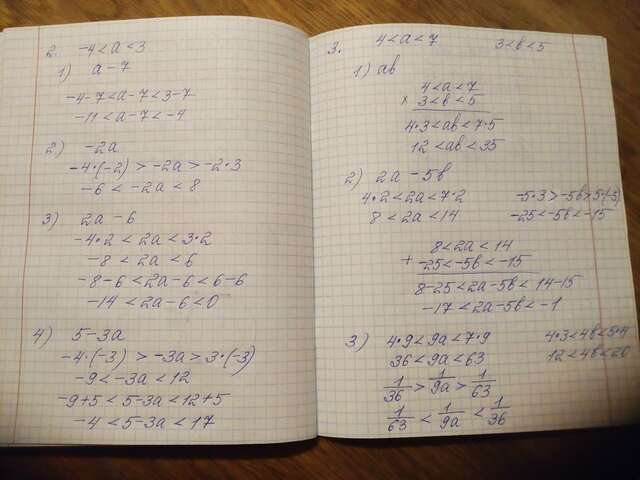 2. -4 < a < 3
1) a - 7
-4-7 < a-7 < 3-7
-11 < a-7 < -4
2) -2a
-4·(-2) > -2a > -2·3
-6 < -2a < 8
3) 2a - 6
-4·2 < 2a < 3·2
-8 < 2a < 6
-8-6 < 2a-6 < 6-6
-14 < 2a-6 < 0
4) 5-3a
-4·(-3) > -3a > 3·(-3)
-9 < -3a < 12
-9+5 < 5-3a < 12+5
-4 < 5-3a < 17
3. 4 < a < 7 3 < b < 5
1) ab
4 < a < 7
× 3 < b < 5
4·3 < ab < 7·5
12 < ab < 35
2) 2a - 5b
4·2 < 2a < 7·2 -5·3 > -5b > 5·(-5)
8 < 2a < 14 -25 < -5b < -15
8 < 2a < 14
+ -25 < -5b < -15
8-25 < 2a-5b < 14-15
-17 < 2a-5b < -1
3) 4·9 < 9a < 7·9 4·3 < 4b < 5·4
36 < 9a < 63 12 < 4b < 20
1/36 > 1/9a > 1/63
1/63 < 1/9a < 1/36